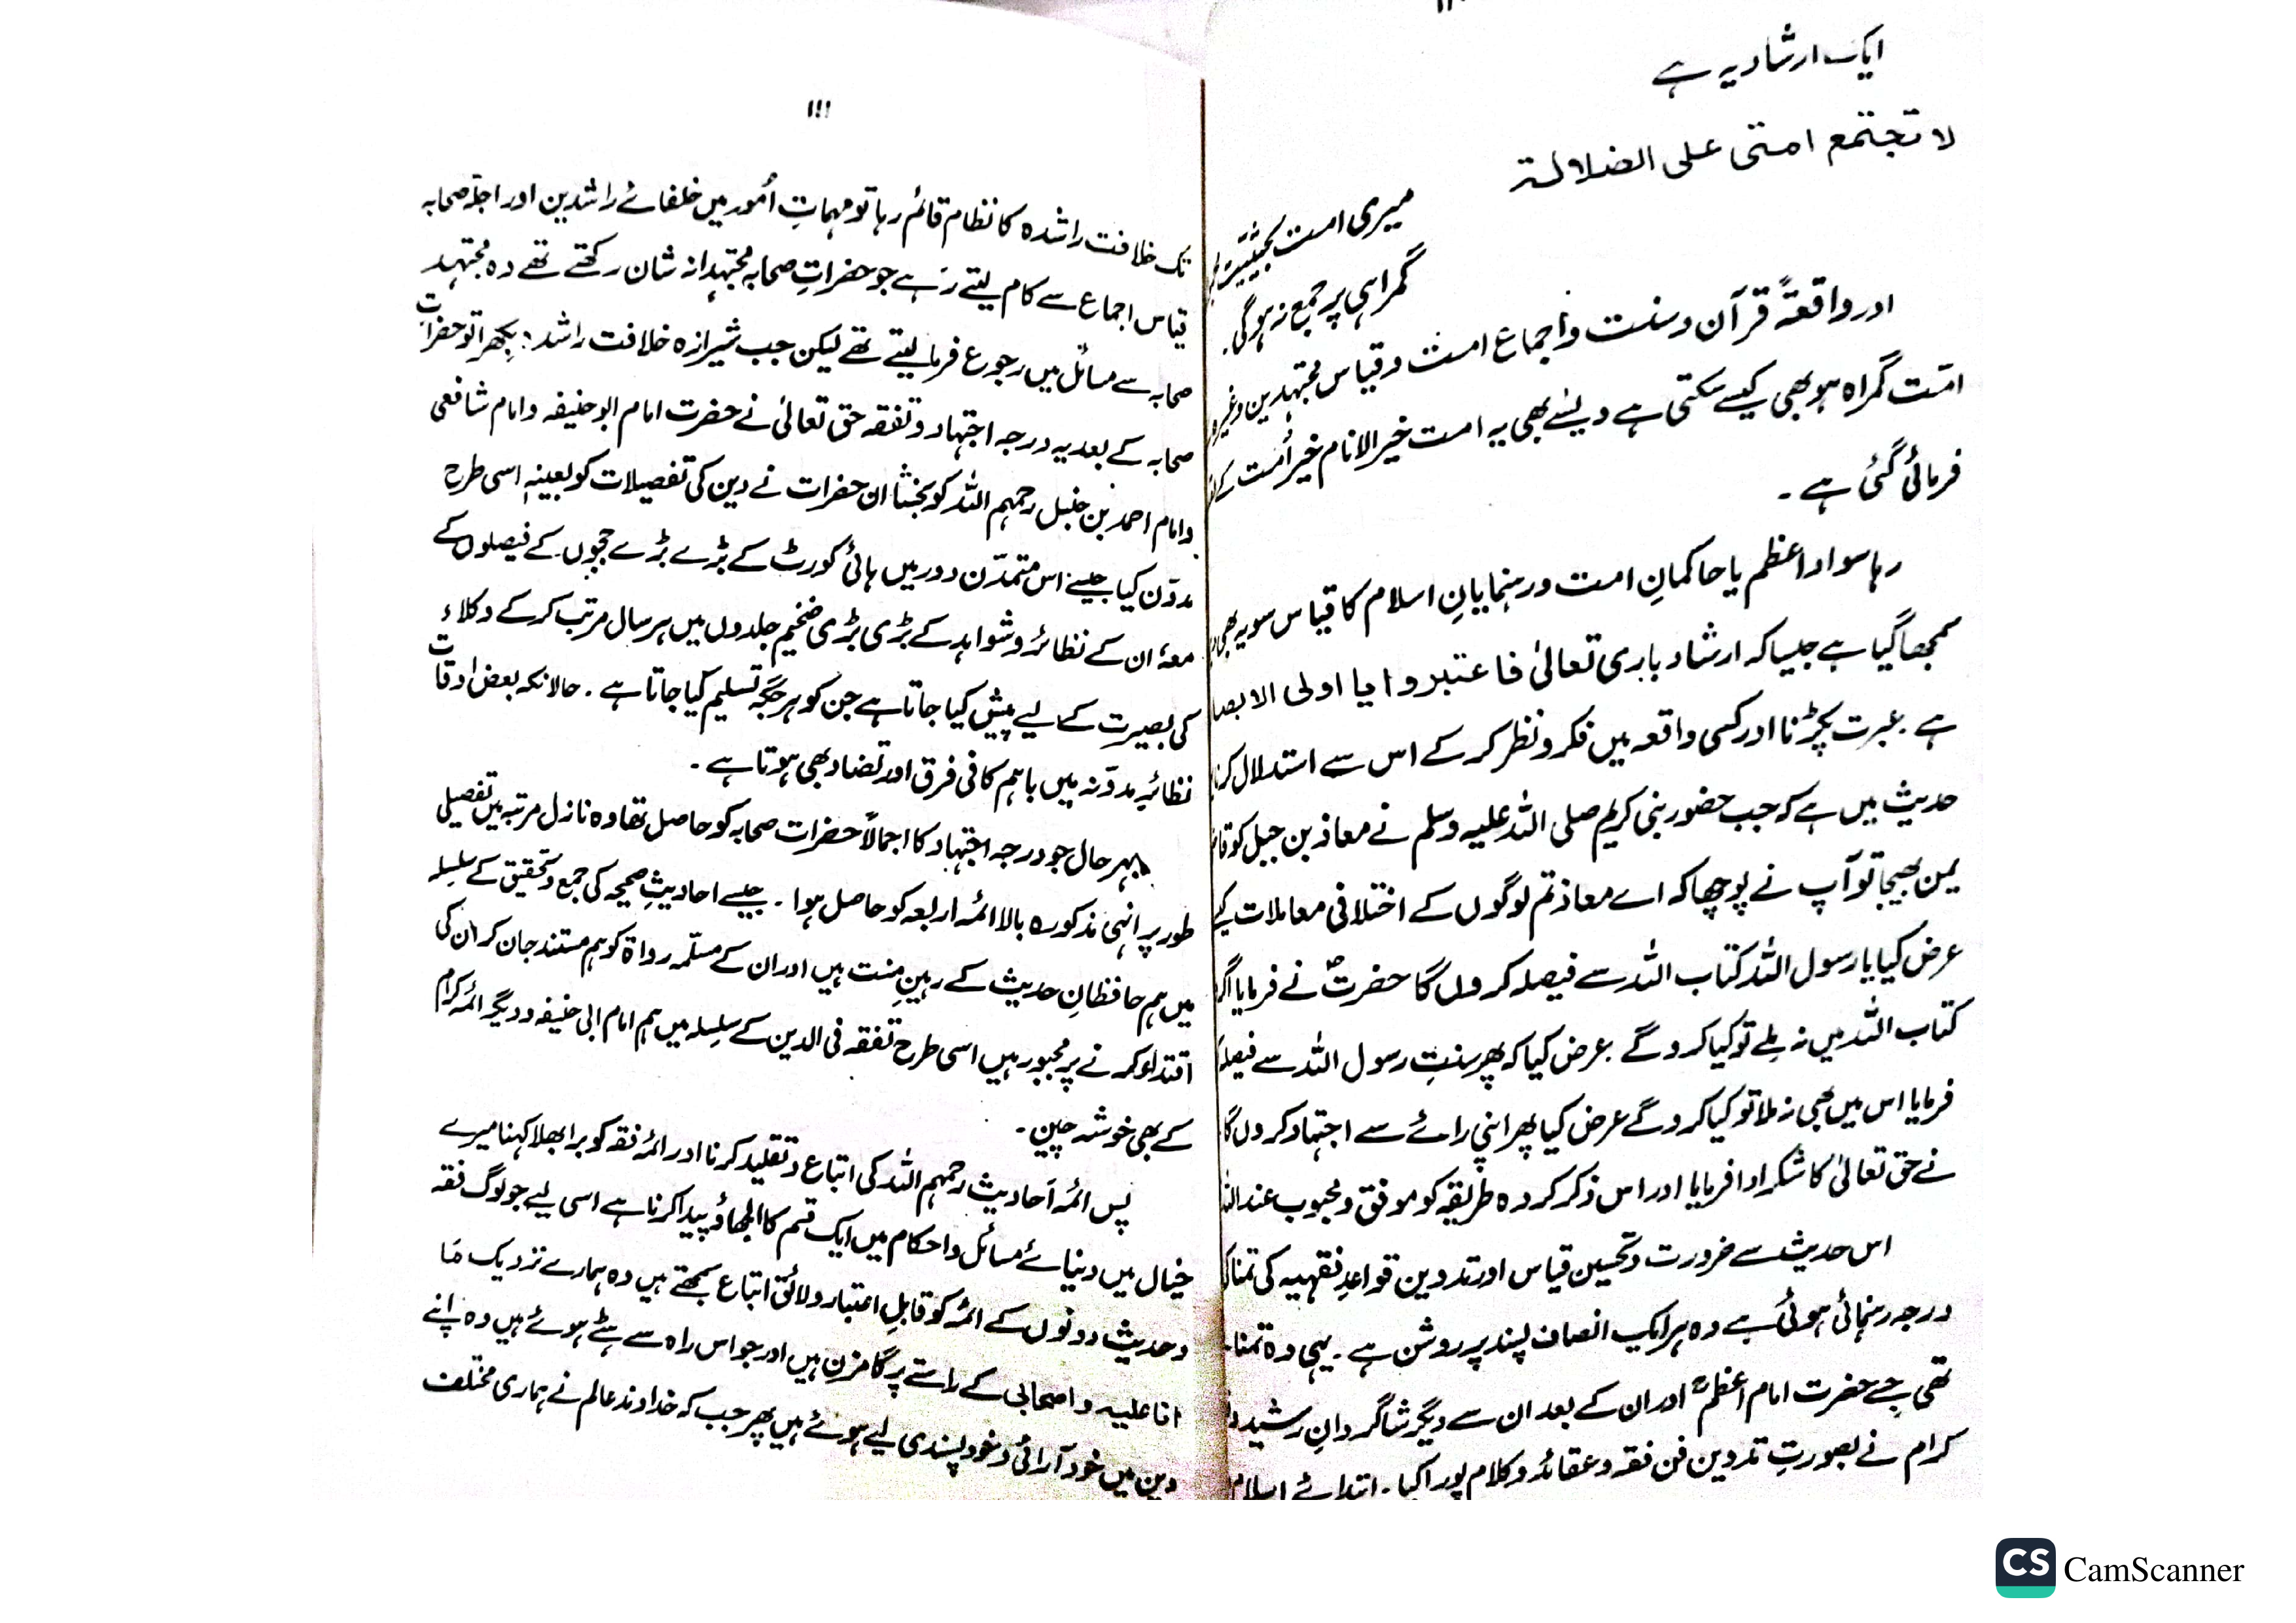 ایک ارشاد یہ ہے
لا تجتمع امتی علی الضلالۃ
میری امت بحیثیت
گمراہی پر جمع نہ ہوگی۔
اور واقعۃً قرآن و سنت و اجماع امت و قیاس مجتہدین وغیرہ
امّت گمراہ ہو بھی کیسے سکتی ہے ویسے بھی یہ امت خیر الانام خیر اُمت کے
فرمائی گئی ہے۔
رہا سوادِ اعظم یا حاکمانِ امت و رہنمایانِ اسلام کا قیاس سو یہ بھی
سمجھا گیا ہے جیسا کہ ارشاد باری تعالیٰ فاعتبروا یا اولی الابصا
ہے۔ عبرت پکڑنا اور کسی واقعہ میں فکر و نظر کر کے اس سے استدلال کرنا
حدیث میں ہے کہ جب حضور نبی کریم صلی اللہ علیہ وسلم نے معاذ بن جبل کو
یمن بھیجا تو آپ نے پوچھا کہ اے معاذ تم لوگوں کے اختلافی معاملات
عرض کیا یا رسول اللہ کتاب اللہ سے فیصلہ کروں گا حضرتؐ نے فرمایا اگر
کتاب اللہ میں نہ ملے تو کیا کرو گے۔ عرض کیا کہ پھر سنتِ رسول اللہ سے فیصلہ
فرمایا اس میں بھی نہ ملا تو کیا کرو گے عرض کیا پھر اپنی رائے سے اجتہاد کروں گا
نے حق تعالیٰ کا شکر ادا فرمایا اور اس ذکر کردہ طریقہ کو موفق و محبوب عند اللہ
اس حدیث سے ضرورت و تحسین قیاس اور تدوین قواعدِ فقہیہ کی تمنا
درجہ رہنمائی ہوئی ہے وہ ہر ایک انصاف پسند پر روشن ہے۔ یہی وہ تمنا
تھی جسے حضرت امام اعظمؒ اور ان کے بعد ان سے دیگر شاگردانِ رشید
کرام نے بصورتِ تدوین فن فقہ و عقائد و کلام پورا کیا۔ ابتدائے اسلام
۱۱۱
تک خلافت راشدہ کا نظام قائم رہا تو مہماتِ اُمور میں خلفائے راشدین اور اجلّہ صحابہ
قیاس اجماع سے کام لیتے رہے جو حضراتِ صحابہ مجتہدانہ شان رکھتے تھے وہ مجتہد
صحابہ سے مسائل میں رجوع فرما لیتے تھے لیکن جب شیرازہ خلافت راشدہ بکھرا تو حضرات
صحابہ کے بعد یہ درجہ اجتہاد و تفقہ حق تعالیٰ نے حضرت امام ابو حنیفہ و امام شافعی
و امام احمد بن حنبل رحمہم اللہ کو بخشا ان حضرات نے دین کی تفصیلات کو بعینہٖ اسی طرح
مدوّن کیا جیسے اس متمدّن دور میں ہائی کورٹ کے بڑے بڑے ججوں کے فیصلوں کے
معہ ان کے نظائر و شواہد کے بڑی بڑی ضخیم جلدوں میں ہر سال مرتب کر کے وکلاء
کی بصیرت کے لیے پیش کیا جاتا ہے جن کو ہر جگہ تسلیم کیا جاتا ہے۔ حالانکہ بعض اوقات
نظائرِ مدوّنہ میں باہم کافی فرق اور تضاد بھی ہوتا ہے۔
بہر حال جو درجہ اجتہاد کا اجمالاً حضرات صحابہ کو حاصل تھا وہ نازل مرتبہ میں تفصیلی
طور پر انہی مذکورہ بالا ائمہ اربعہ کو حاصل ہوا۔ جیسے احادیثِ صحیحہ کی جمع و تحقیق کے سلسلہ
میں ہم حافظانِ حدیث کے رہینِ منت ہیں اور ان کے مسلّمہ رواۃ کو ہم مستند جان کر ان کی
اقتداء کرنے پر مجبور ہیں اسی طرح تفقہ فی الدین کے سلسلہ میں ہم امام ابی حنیفہ و دیگر ائمہ کرام
کے بھی خوشہ چین۔
پس ائمہ احادیث رحمہم اللہ کی اتباع و تقلید کرنا اور ائمہ فقہ کو برا بھلا کہنا میرے
خیال میں دنیائے مسائل و احکام میں ایک قسم کا الجھاؤ پیدا کرنا ہے اسی لیے جو لوگ فقہ
و حدیث دونوں کے ائمہ کو قابلِ اعتبار و لائق اتباع سمجھتے ہیں وہ ہمارے نزدیک ما
انا علیہ و اصحابی کے راستے پر گامزن ہیں اور جو اس راہ سے ہٹے ہوئے ہیں وہ اپنے
دین میں خود آرائی و خود پسندی لیے ہوئے ہیں پھر جب کہ خداوند عالم نے ہماری مختلف
CS CamScanner